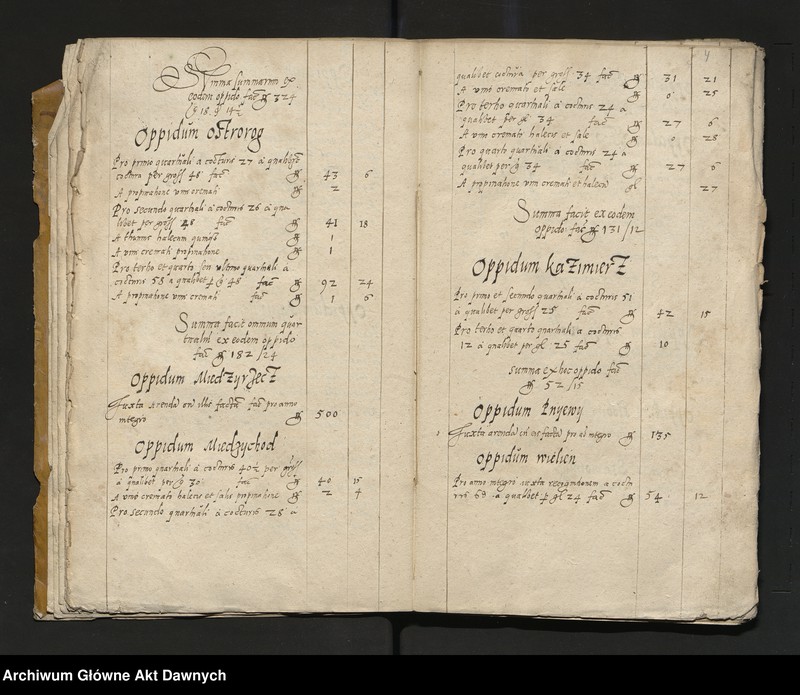 Summa summarum ex
eodem oppido fac 324
18 14½
Oppidum Ostrorog
Pro primo quartuali a cocturis 27 a qualibet
coctura per gross 48 fac 43 6
A propinatione vini cremati 2
Pro secundo quartuali a cocturis 26 a qua
libet per gross 48 fac 41 18
A halecum 1
A vini cremati propinatione 1
Pro tertio et quarto seu ultimo quartuali a
cocturis 58 a qualibet 48 fac 92 24
A propinatione vini cremati fac 1 6
Summa facit omnium quar
tualium ex eodem oppido
fac 182/24
Oppidum Miedzyrzecz
Juxta arendam cum illis factam fac pro anno
integro 500
Oppidum Miedzychod
Pro primo quartuali a cocturis 40½ per gross
a qualibet per 30 fac 40 15
A vini cremati halecis et salis propinatione 2 4
Pro secundo quartuali a cocturis 28 a
4
qualibet coctura per gross 34 fac 31 21
A vini cremati et sale 0 25
Pro tertio quartuali a cocturis 24 a
qualibet per 34 fac 27 6
A vini cremati halecis et sale 0 28
Pro quarto quartuali a cocturis 24 a
qualibet per 34 fac 27 6
A propinatione vini cremati et halecis 27
Summa facit ex eodem
oppido fac 131/12
Oppidum Kazimierz
Pro primo et secundo quartuali a cocturis 51
a qualibet per gross 25 fac 42 15
Pro tertio et quarto quartuali a cocturis
12 a qualibet per 25 fac 10
Summa ex hoc oppido fac
52/15
Oppidum Pnyewy
Juxta arendam cum eis factam pro anno integro 135
Oppidum Wielien
Pro anno integro juxta recognitionem a coctu
ris 68 a qualibet 24 fac 54 12
Archiwum Główne Akt Dawnych